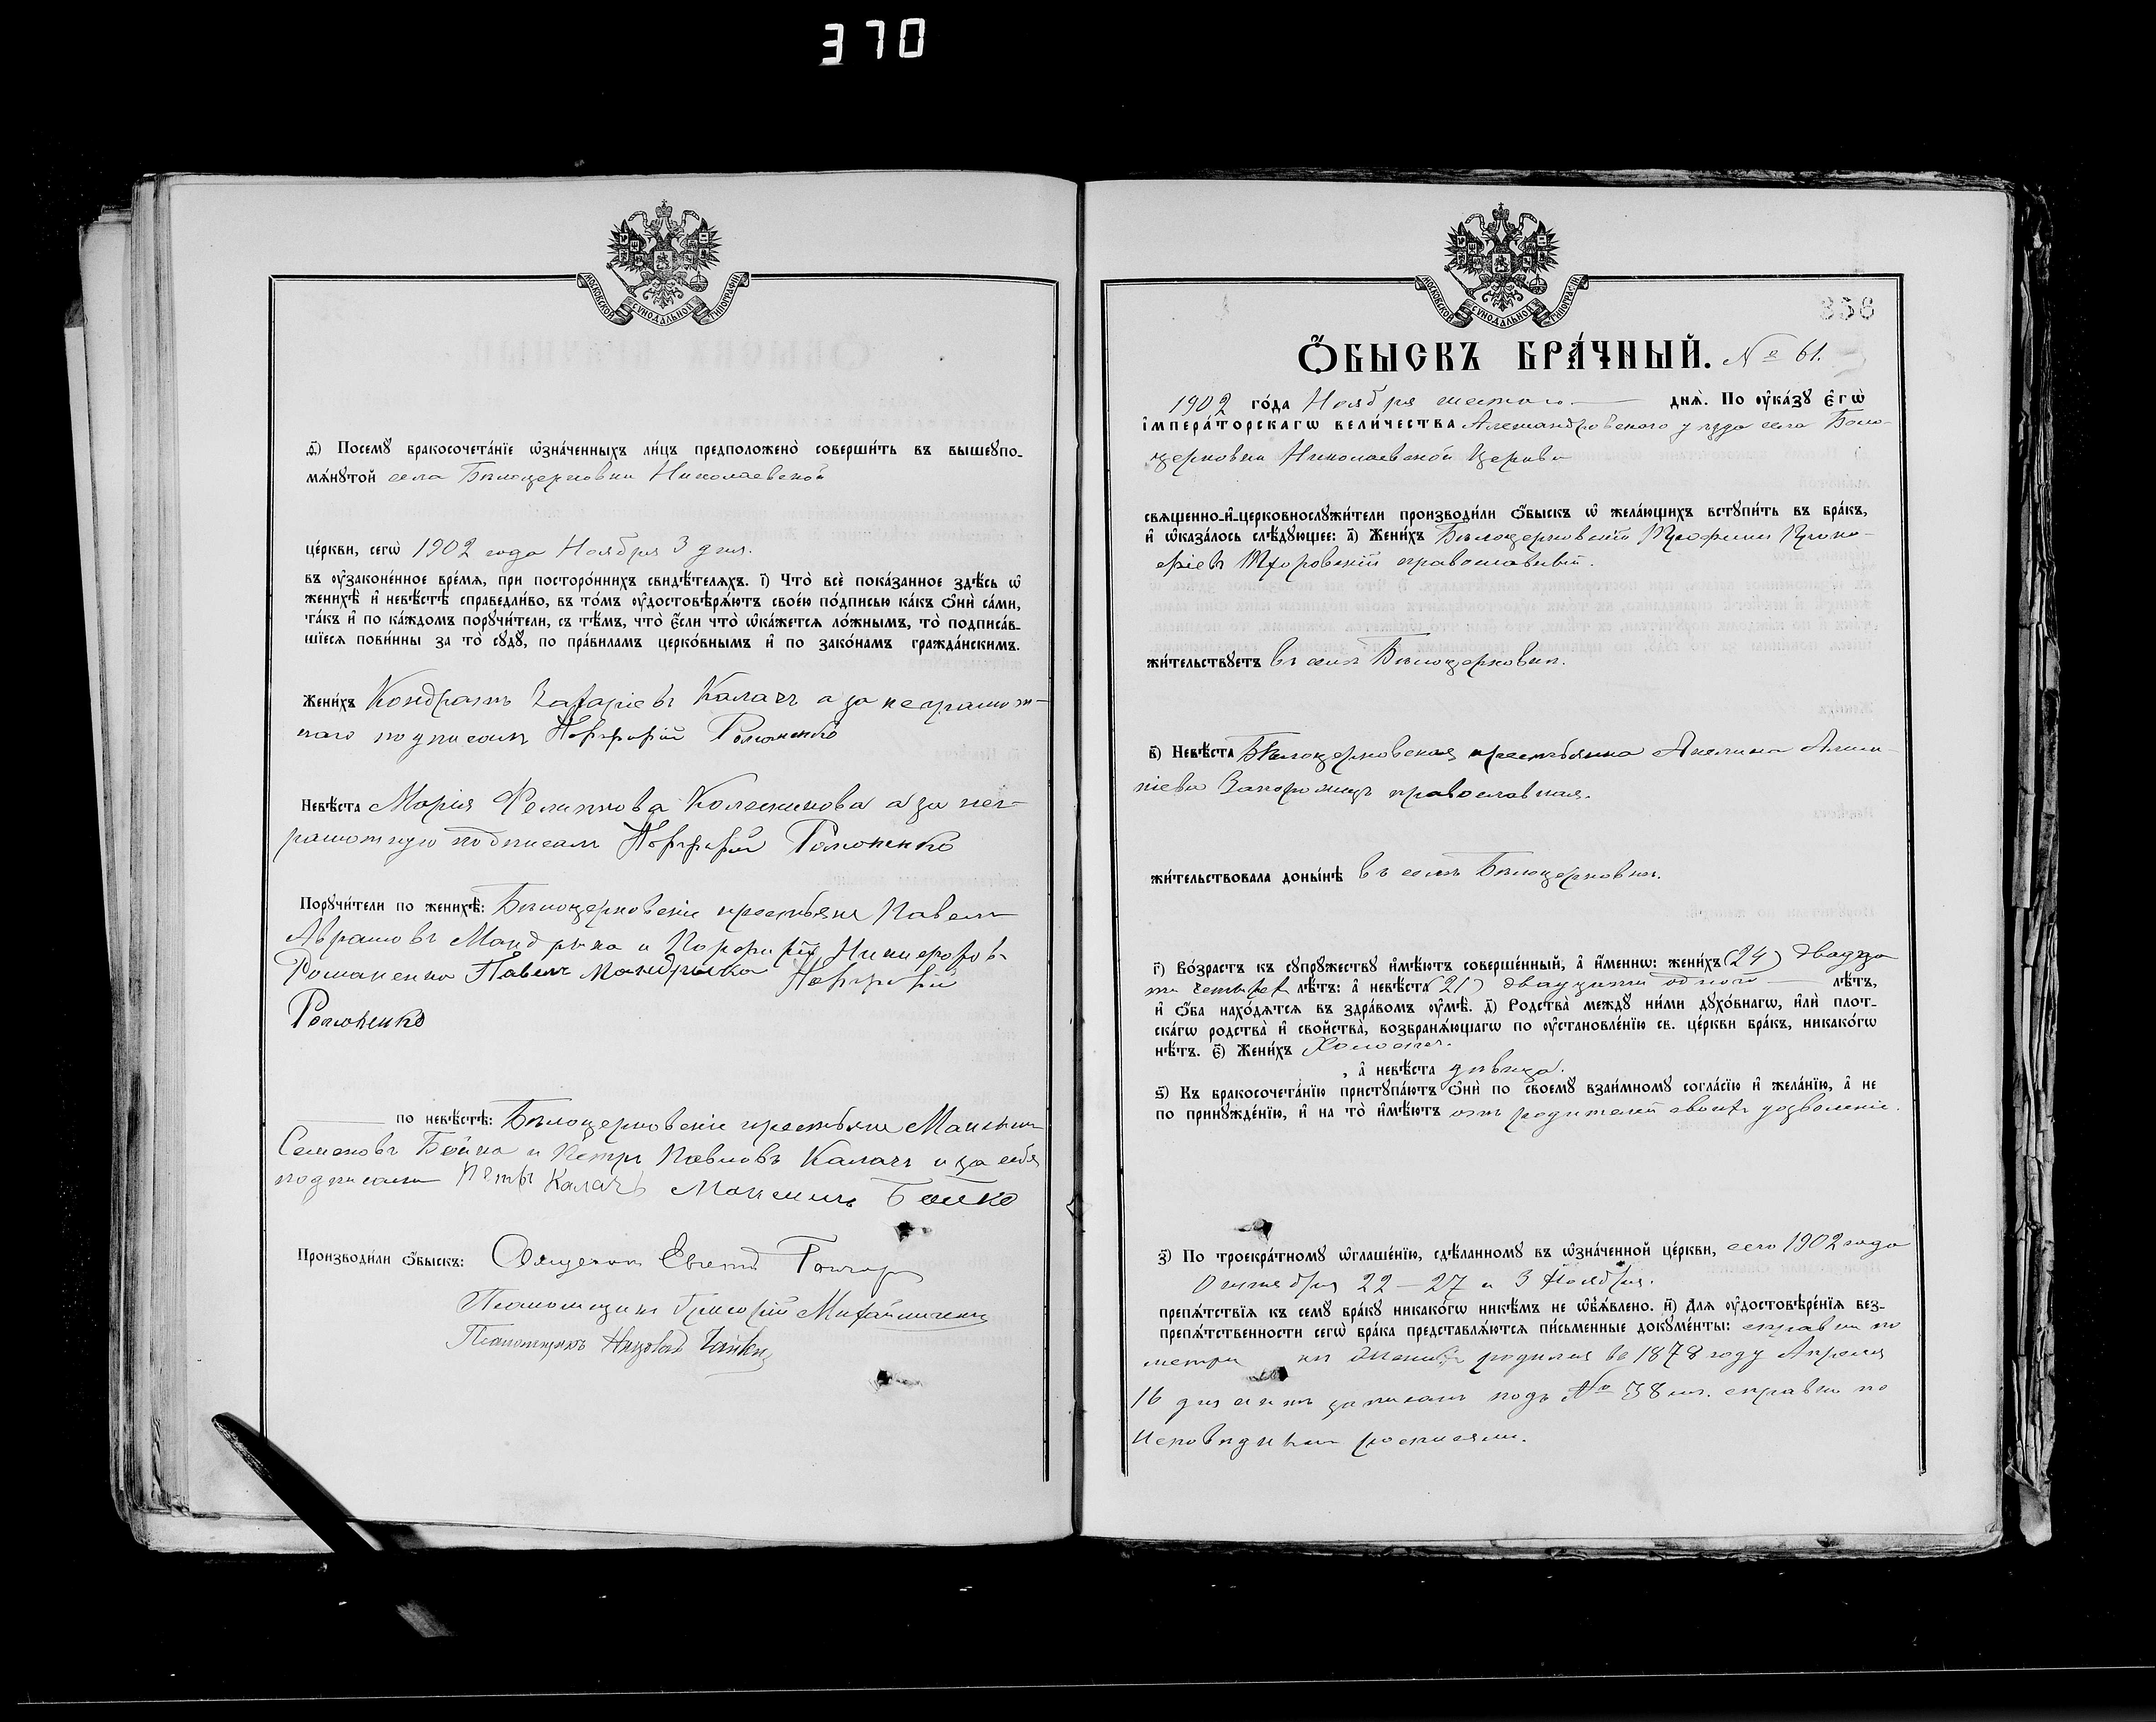 370
МОСКОВСКОЙ СѴНОДАЛЬНОЙ ТИПОГРАФІИ
ѳ҃) Посемꙋ̀ бракосочета́нїе ѡ҆зна́ченныхъ ли́цъ предположено̀ соверши́ть въ вышеꙋпо-
мѧ́нꙋтой села Бѣлоцерковки Николаевской
це́ркви, сегѡ̀ 1902 года Ноября 3 дня.
въ ᲂу҆зако́ненное вре́мѧ, при посторо́ннихъ свидѣ́телѧхъ. і҃) Что̀ всѐ пока́занное здѣ́сь ѡ҆
женихѣ̀ и҆ невѣ́стѣ справедли́во, въ то́мъ ᲂу҆достовѣрѧ́ютъ свое́ю по́дписью ка́къ ѻ҆нѝ са́ми,
та́къ и҆ по ка́ждомъ порꙋчи́тели, съ тѣ́мъ, что̀ є҆́сли что̀ ѡ҆ка́жетсѧ ло́жнымъ, то̀ подписа́в-
шїесѧ пови́нны за то̀ сꙋдꙋ̀, по пра́виламъ церко́внымъ и҆ по зако́намъ гражда́нскимъ.
Жени́хъ Кондратъ Захаріевъ Калачъ а за неграмот-
наго подписалъ Порфирій Романенко
Невѣ́ста Марія Филиппова Колесникова а за нег-
рамотную подписалъ Порфирій Романенко
Порꙋчи́тели по женихѣ̀: Бѣлоцерковскіе крестьяне Павелъ
Аврамовъ Мандрыка и Порфирій Никифоровъ
Романенко Павелъ Мандрыка Порфирій
Романенко
по невѣ́стѣ: Бѣлоцерковскіе крестьяне Максимъ
Семеновъ Бойко и Петръ Павловъ Калачъ и за себя
подписали Петръ Калачъ Максимъ Бойко
Производи́ли ѻ҆́быскъ: Священник Евгений Гончар
Псаломщикъ Григорій Михайличенко
Псаломщикъ
МОСКОВСКОЙ СѴНОДАЛЬНОЙ ТИПОГРАФІИ
356
Ѻ҆́БЫСКЪ БРА́ЧНЫЙ. № 61.
1902 го́да Ноября шестого днѧ̀. По ᲂу҆ка́зꙋ є҆гѡ̀
і҆мпера́торскагѡ вели́чества Александровского уезда села Бело-
церковки Николаевской Церкви
свѧще́нно-и҆-церковнослꙋжи́тели производи́ли ѻ҆́быскъ ѡ҆ жела́ющихъ встꙋпи́ть въ бра́къ,
и҆ ѡ҆каза́лось слѣ́дꙋющее: а҃) Жени́хъ Бѣлоцерковскій Трофимъ Проко-
фіевъ православный.
жи́тельствꙋетъ въ селѣ Бѣлоцерковкѣ.
в҃) Невѣ́ста Бѣлоцерковская крестьянка Акилина
Запорожецъ православная.
жи́тельствовала доны́нѣ въ селѣ Бѣлоцерковкѣ.
г҃) Во́зрастъ къ сꙋпрꙋ́жествꙋ и҆мѣ́ютъ соверше́нный, а҆ и҆́меннѡ: жени́хъ (24) двадца
ти четырех лѣ́тъ: а҆ невѣ́ста (21) двадцати одного лѣ́тъ,
и҆ ѻ҆́ба нахо́дѧтсѧ въ здра́вомъ ᲂу҆мѣ̀. д҃) Родства̀ междꙋ̀ ни́ми дꙋхо́внагѡ, и҆лѝ плот-
ска́гѡ родства̀ и҆ свойства̀, возбранѧ́ющагѡ по ᲂу҆становле́нїю св. це́ркви бра́къ, никако́гѡ
нѣ́тъ. є҃) Жени́хъ Холостъ.
, а҆ невѣ́ста дѣвица.
ѕ҃) Къ бракосочета́нїю пристꙋпа́ютъ ѻ҆нѝ по своемꙋ̀ взаи́мномꙋ согла́сїю и҆ жела́нїю, а҆ не
по принꙋжде́нїю, и҆ на то̀ и҆мѣ́ютъ отъ родителей своихъ дозволеніе.
з҃) По троекра́тномꙋ ѡ҆глаше́нїю, сдѣ́ланномꙋ въ ѡ҆зна́ченной це́ркви, сего 1902 года
Октября 22 – 27 и 3 Ноября.
препѧ́тствїѧ къ семꙋ̀ бра́кꙋ никако́гѡ никѣ́мъ не ѡ҆б̾ѧ́влено. и҃) Длѧ ᲂу҆достовѣре́нїѧ без-
препѧ́тственности сегѡ̀ бра́ка представлѧ́ютсѧ пи́сьменные докꙋме́нты: справки по
метри кѣ женихъ родился въ 1878 году Апреля
16 дня актъ записанъ подъ № 38 справки по
исповѣднымъ росписямъ.